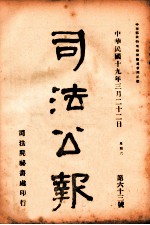 中華民國十九年三月二十二日
星期六
第六十三號
司法公報
司法院祕書處印行